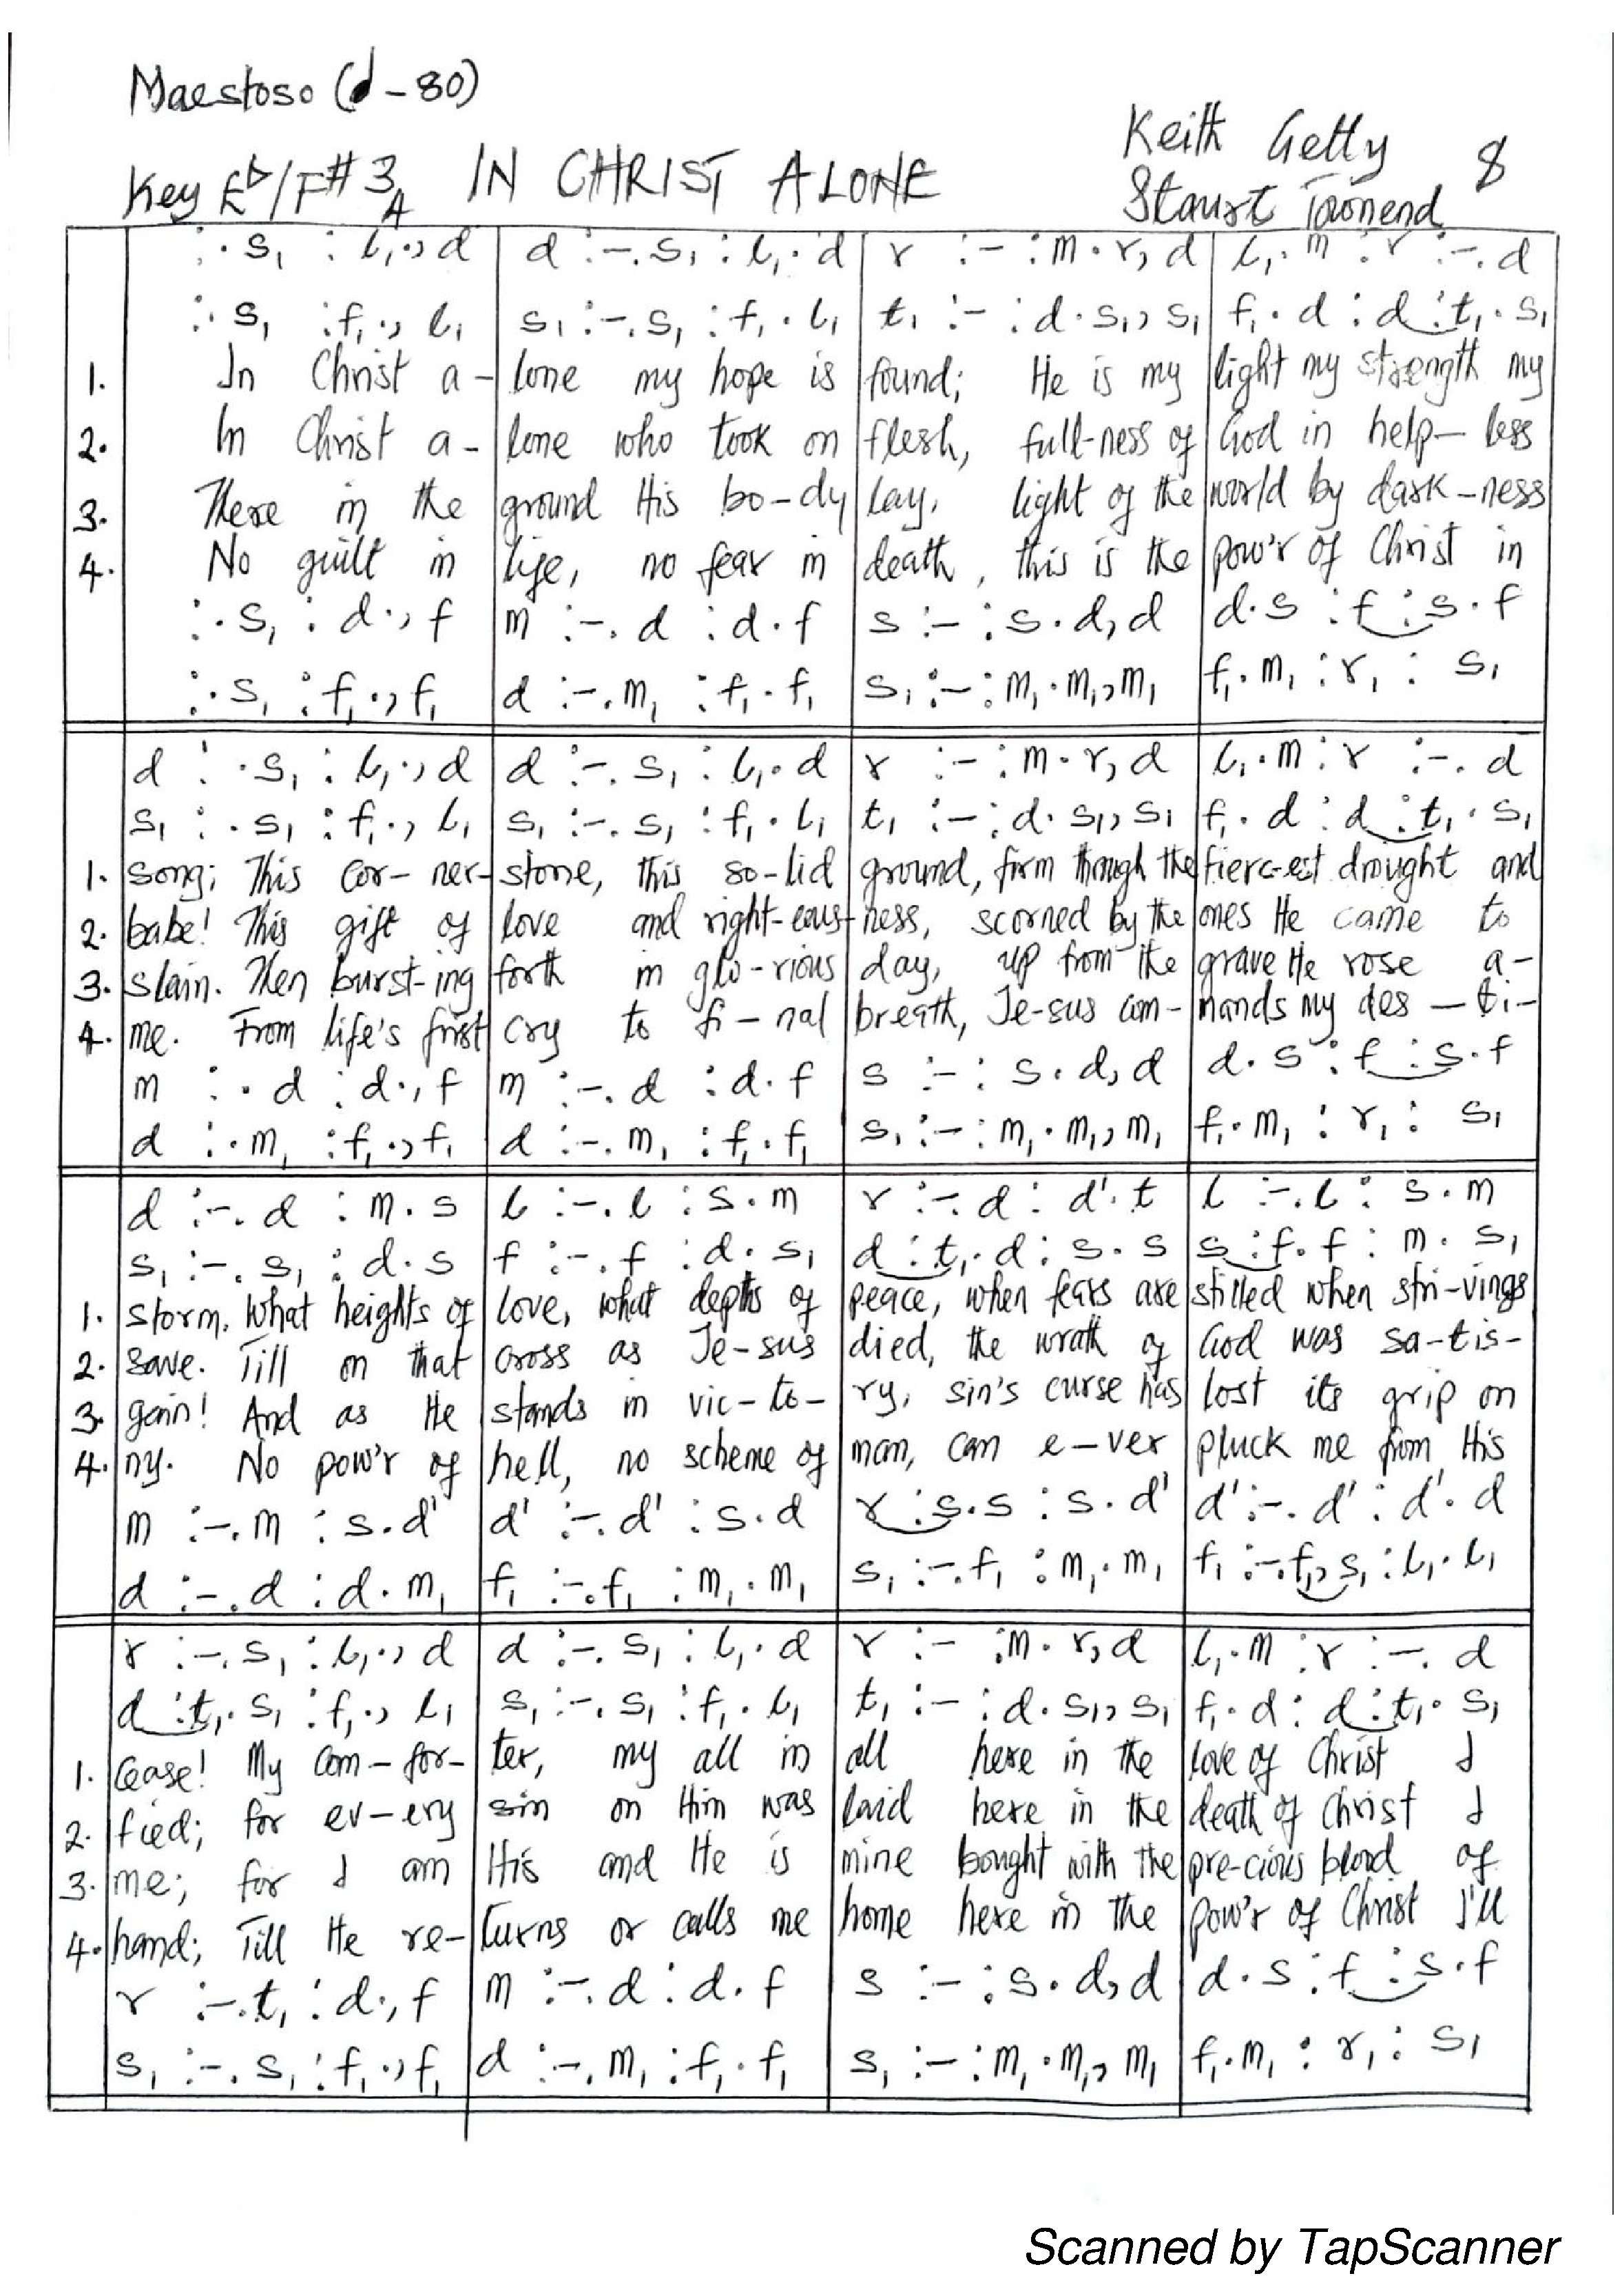 Maestoso (d-80)
Keith Getty 8
Key Eb/F# 3/4 IN CHRIST ALONE
Stauxt Townend
:. s₁ : l₁., d | d :-. s₁ : l₁. d | r :- : m. r, d | l₁. m : r :-. d
:. s₁ : f₁., l₁ | s₁ :-. s₁ : f₁. l₁ | t₁ :- : d. s₁, s₁ | f₁. d : d : t₁. s₁
1. In Christ a- | lone my hope is | found; He is my | light my strength my
2. In Christ a- | lone who took on | flesh, full-ness of | God in help- less
3. There in the | ground His bo-dy | lay, light of the | world by dark-ness
4. No guilt in | life, no fear in | death, this is the | pow'r of Christ in
:. s₁ : d., f | m :-. d : d. f | s :- : s. d, d | d. s : f : s. f
:. s₁ : f₁., f₁ | d :-. m₁ : f₁. f₁ | s₁ :- : m₁. m₁, m₁ | f₁. m₁ : r₁ : s₁
d :. s₁ : l₁., d | d :-. s₁ : l₁. d | r :- : m. r, d | l₁. m : r :-. d
s₁ :. s₁ : f₁., l₁ | s₁ :-. s₁ : f₁. l₁ | t₁ :- : d. s₁, s₁ | f₁. d : d : t₁. s₁
1. song; This cor- ner- | stone, this so-lid | ground, firm through the | fierc-est drought and
2. babe! This gift of | love and right-eous- | ness, scorned by the | ones He came to
3. slain. Then burst-ing | forth in glo-rious | day, up from the | grave He rose a-
4. me. From life's first | cry to fi-nal | breath, Je-sus com- | mands my des - ti-
m :. d : d., f | m :-. d : d. f | s :- : s. d, d | d. s : f : s. f
d :. m₁ : f₁., f₁ | d :-. m₁ : f₁. f₁ | s₁ :- : m₁. m₁, m₁ | f₁. m₁ : r₁ : s₁
d :-. d : m. s | l :-. l : s. m | r :-. d : d'. t | l :-. l : s. m
s₁ :-. s₁ : d. s | f :-. f : d. s₁ | d : t₁. d : s. s | s : f. f : m. s₁
1. storm. What heights of | love, what depths of | peace, when fears are | stilled when stri-vings
2. save. Till on that | cross as Je-sus | died, the wrath of | God was sa-tis-
3. gain! And as He | stands in vic-to- | ry, sin's curse has | lost its grip on
4. ny. No pow'r of | hell, no scheme of | man, can e-ver | pluck me from His
m :-. m : s. d' | d' :-. d' : s. d | r : s. s : s. d' | d' :-. d' : d'. d
d :-. d : d. m₁ | f₁ :-. f₁ : m₁. m₁ | s₁ :-. f₁ : m₁. m₁ | f₁ :-. f₁, s₁ : l₁. l₁
r :-. s₁ : l₁., d | d :-. s₁ : l₁. d | r :- : m. r, d | l₁. m : r :-. d
d : t₁. s₁ : f₁., l₁ | s₁ :-. s₁ : f₁. l₁ | t₁ :- : d. s₁, s₁ | f₁. d : d : t₁. s₁
1. cease! My com-for- | ter, my all in | all here in the | love of Christ I
2. fied; for ev-ery | sin on Him was | laid here in the | death of Christ I
3. me; for I am | His and He is | mine bought with the | pre-cious blood of
4. hand; Till He re- | turns or calls me | home here in the | pow'r of Christ I'll
r :-. t₁ : d., f | m :-. d : d. f | s :- : s. d, d | d. s : f : s. f
s₁ :-. s₁ : f₁., f₁ | d :-. m₁ : f₁. f₁ | s₁ :- : m₁. m₁, m₁ | f₁. m₁ : r₁ : s₁
Scanned by TapScanner